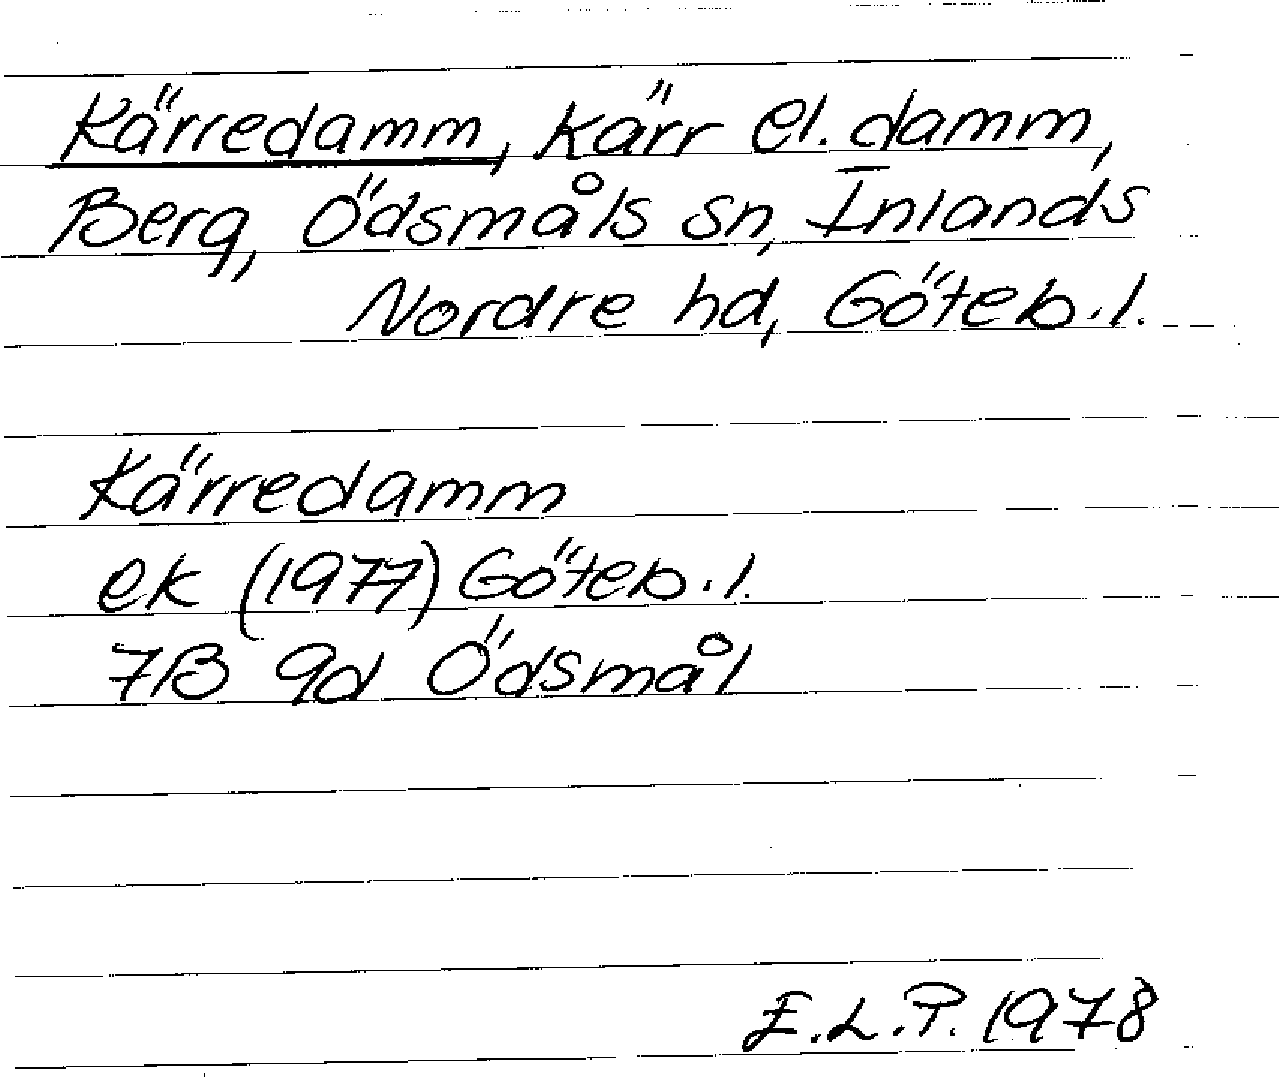 Kärredamm, kärr el. damm,
Berg, Ödsmåls sn, Inlands
Nordre hd, Göteb.l.
Kärredamm
ek (1977) Göteb.l.
7B 9d Ödsmål
E.L.P. 1978